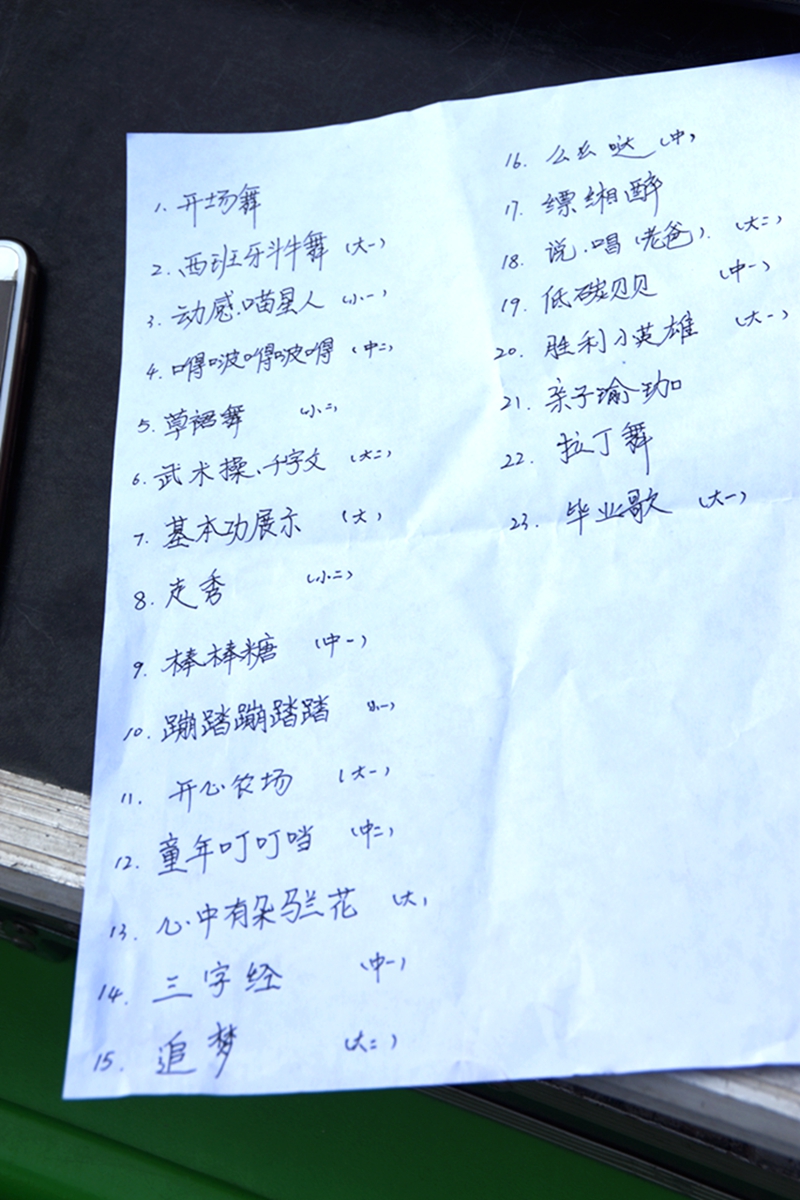 1. 开场舞
2. 西班牙斗牛舞 (大一)
3. 动感.喵星人 (小一)
4. 嘚啵嘚啵嘚 (中二)
5. 草裙舞 (小二)
6. 武术操、千字文 (大二)
7. 基本功展示 (大)
8. 走秀 (小二)
9. 棒棒糖 (中一)
10. 蹦踏蹦踏踏 小一
11. 开心农场 (大一)
12. 童年叮叮当 (中二)
13. 心中有朵马兰花 (大)
14. 三字经 (中一)
15. 追梦 (大二)
16. 么么哒 (中)
17. 缥缃醉
18. 说.唱(老爸). (大二)
19. 低碳贝贝 (中一)
20. 胜利小英雄 (大一)
21. 亲子瑜珈
22. 拉丁舞
23. 毕业歌 (大一)